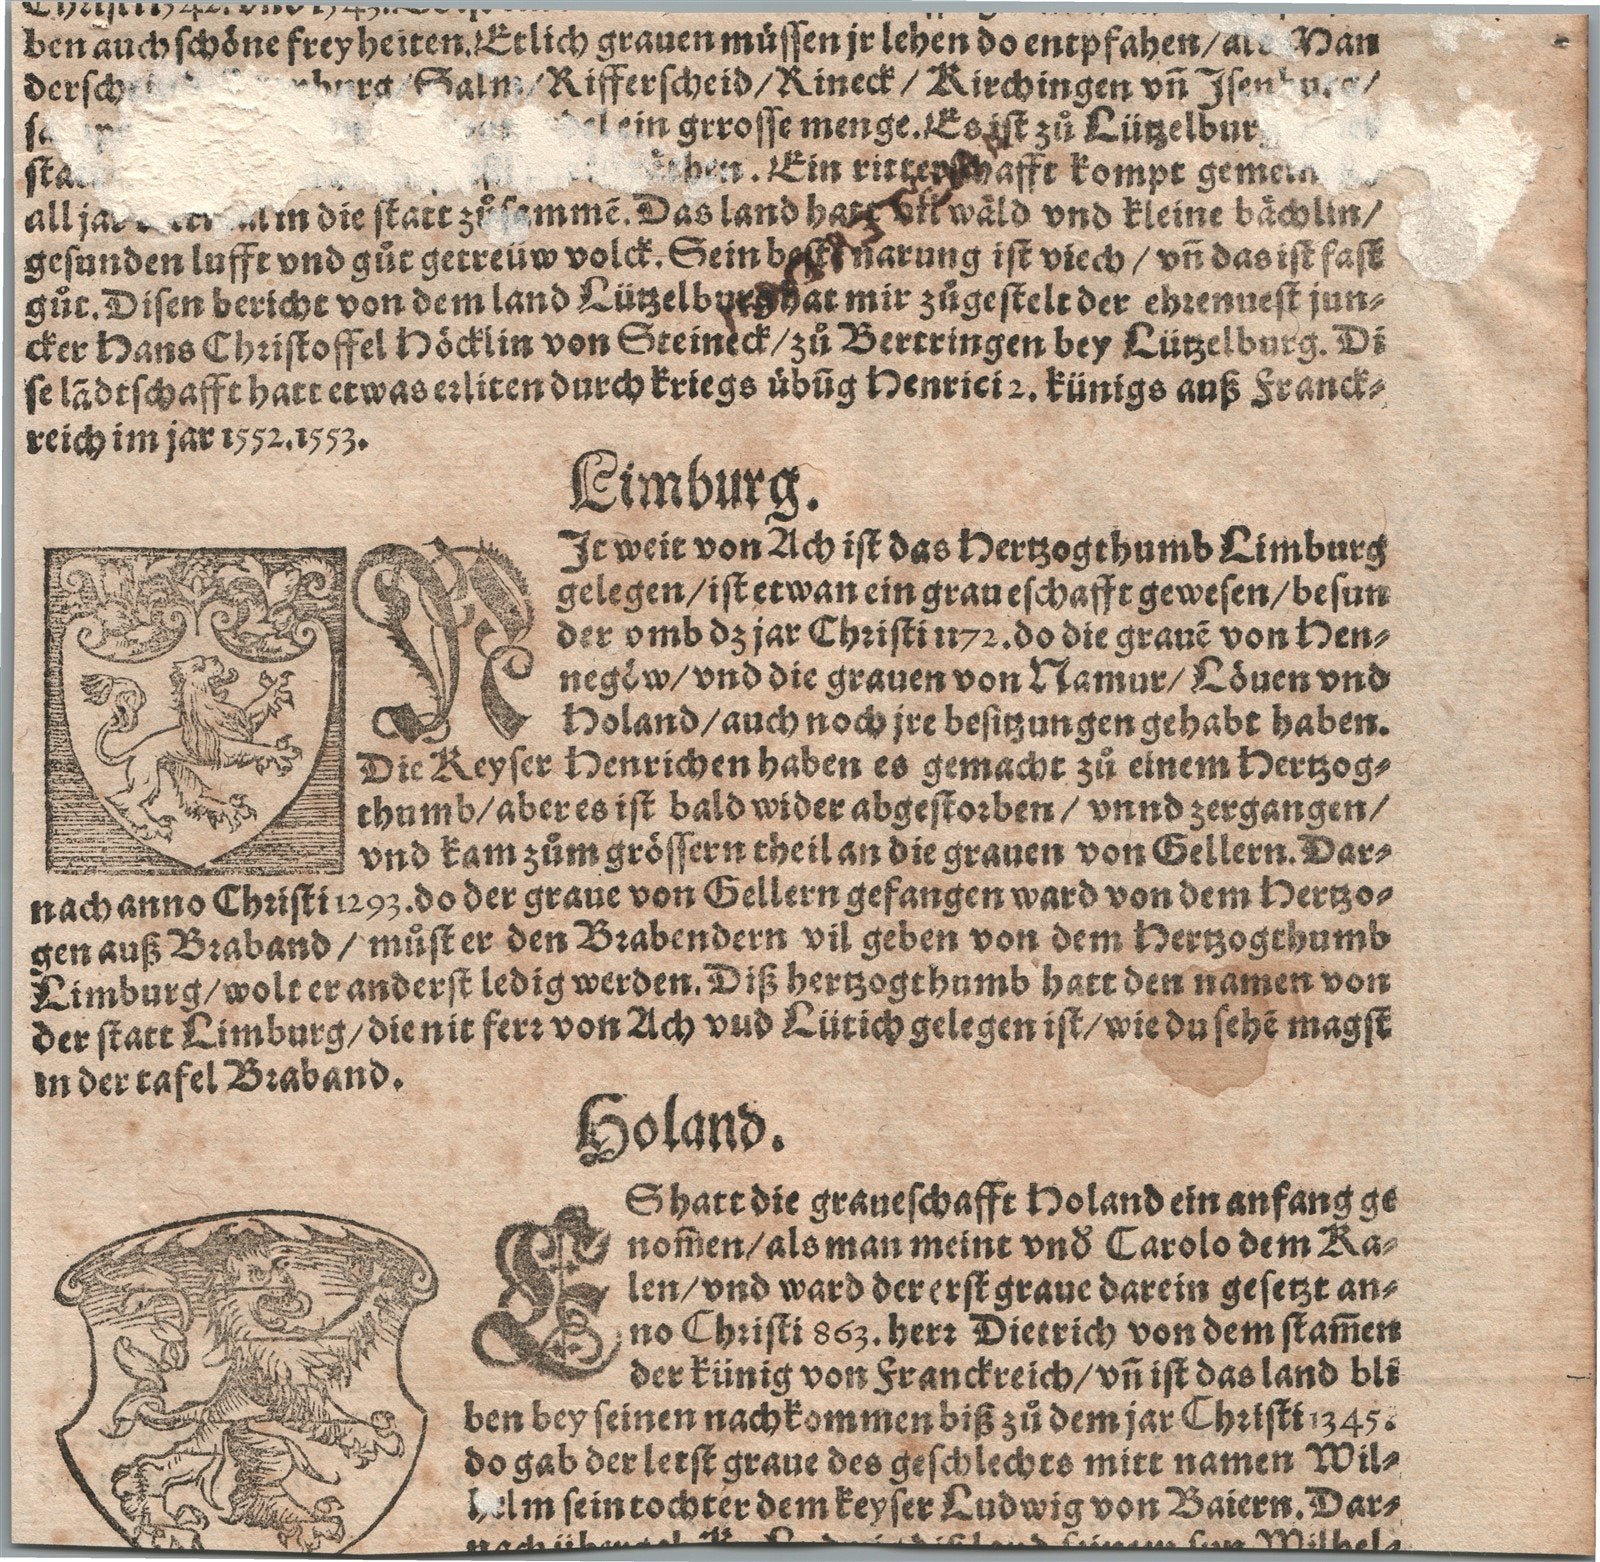 ben auch schöne freyheiten. Etlich grauen müssen jr lehen do entpfahen/ als Man
Salm/ Rifferscheid/ Rineck/ Kirchingen vñ Isenburg/
ein grrosse menge. Es ist zů Lützelburg
Ein ritterschafft kompt
all jar in die statt zůsammē. Das land hatt vil wäld vnd kleine bächlin/
gesunden lufft vnd gůt getreüw volck. Sein beste narung ist viech/ vñ das ist fast
gůt. Disen bericht von dem land Lützelburg hat mir zůgestelt der ehrenuest jun-
cker Hans Christoffel Höcklin von Steineck/ zů Bertringen bey Lützelburg. Di
se lādtschafft hatt etwas erliten durch kriegs übūg Henrici 2. künigs auß Franck-
reich im jar 1552. 1553.
Limburg.
NIt weit von Ach ist das Hertzogthumb Limburg
gelegen/ ist etwan ein graueschafft gewesen/ besun
der vmb dz jar Christi 1172. do die grauē von Hen-
negöw/ vnd die grauen von Namur/ Löuen vnd
Holand/ auch noch jre besitzungen gehabt haben.
Die Keyser Henrichen haben es gemacht zů einem Hertzog-
thumb/ aber es ist bald wider abgestorben/ vnnd zergangen/
vnd kam zům grössern theil an die grauen von Gellern. Dar-
nach anno Christi 1293. do der graue von Gellern gefangen ward von dem Hertzo-
gen auß Braband/ můst er den Brabendern vil geben von dem Hertzogthumb
Limburg/ wolt er anderst ledig werden. Diß hertzogthumb hatt den namen von
der statt Limburg/ die nit ferr von Ach vud Lütich gelegen ist/ wie du sehē magst
in der tafel Braband.
Holand.
ES hatt die graueschafft Holand ein anfang ge
nom̄en/ als man meint vnd Carolo dem Ka-
len/ vnd ward der erst graue darein gesetzt an-
no Christi 863. herr Dietrich von dem stam̄en
der künig von Franckreich/ vñ ist das land bli
ben bey seinen nachkommen biß zů dem jar Christi 1345.
do gab der letst graue des geschlechts mitt namen Wil-
helm sein tochter dem keyser Ludwig von Baiern. Dar-